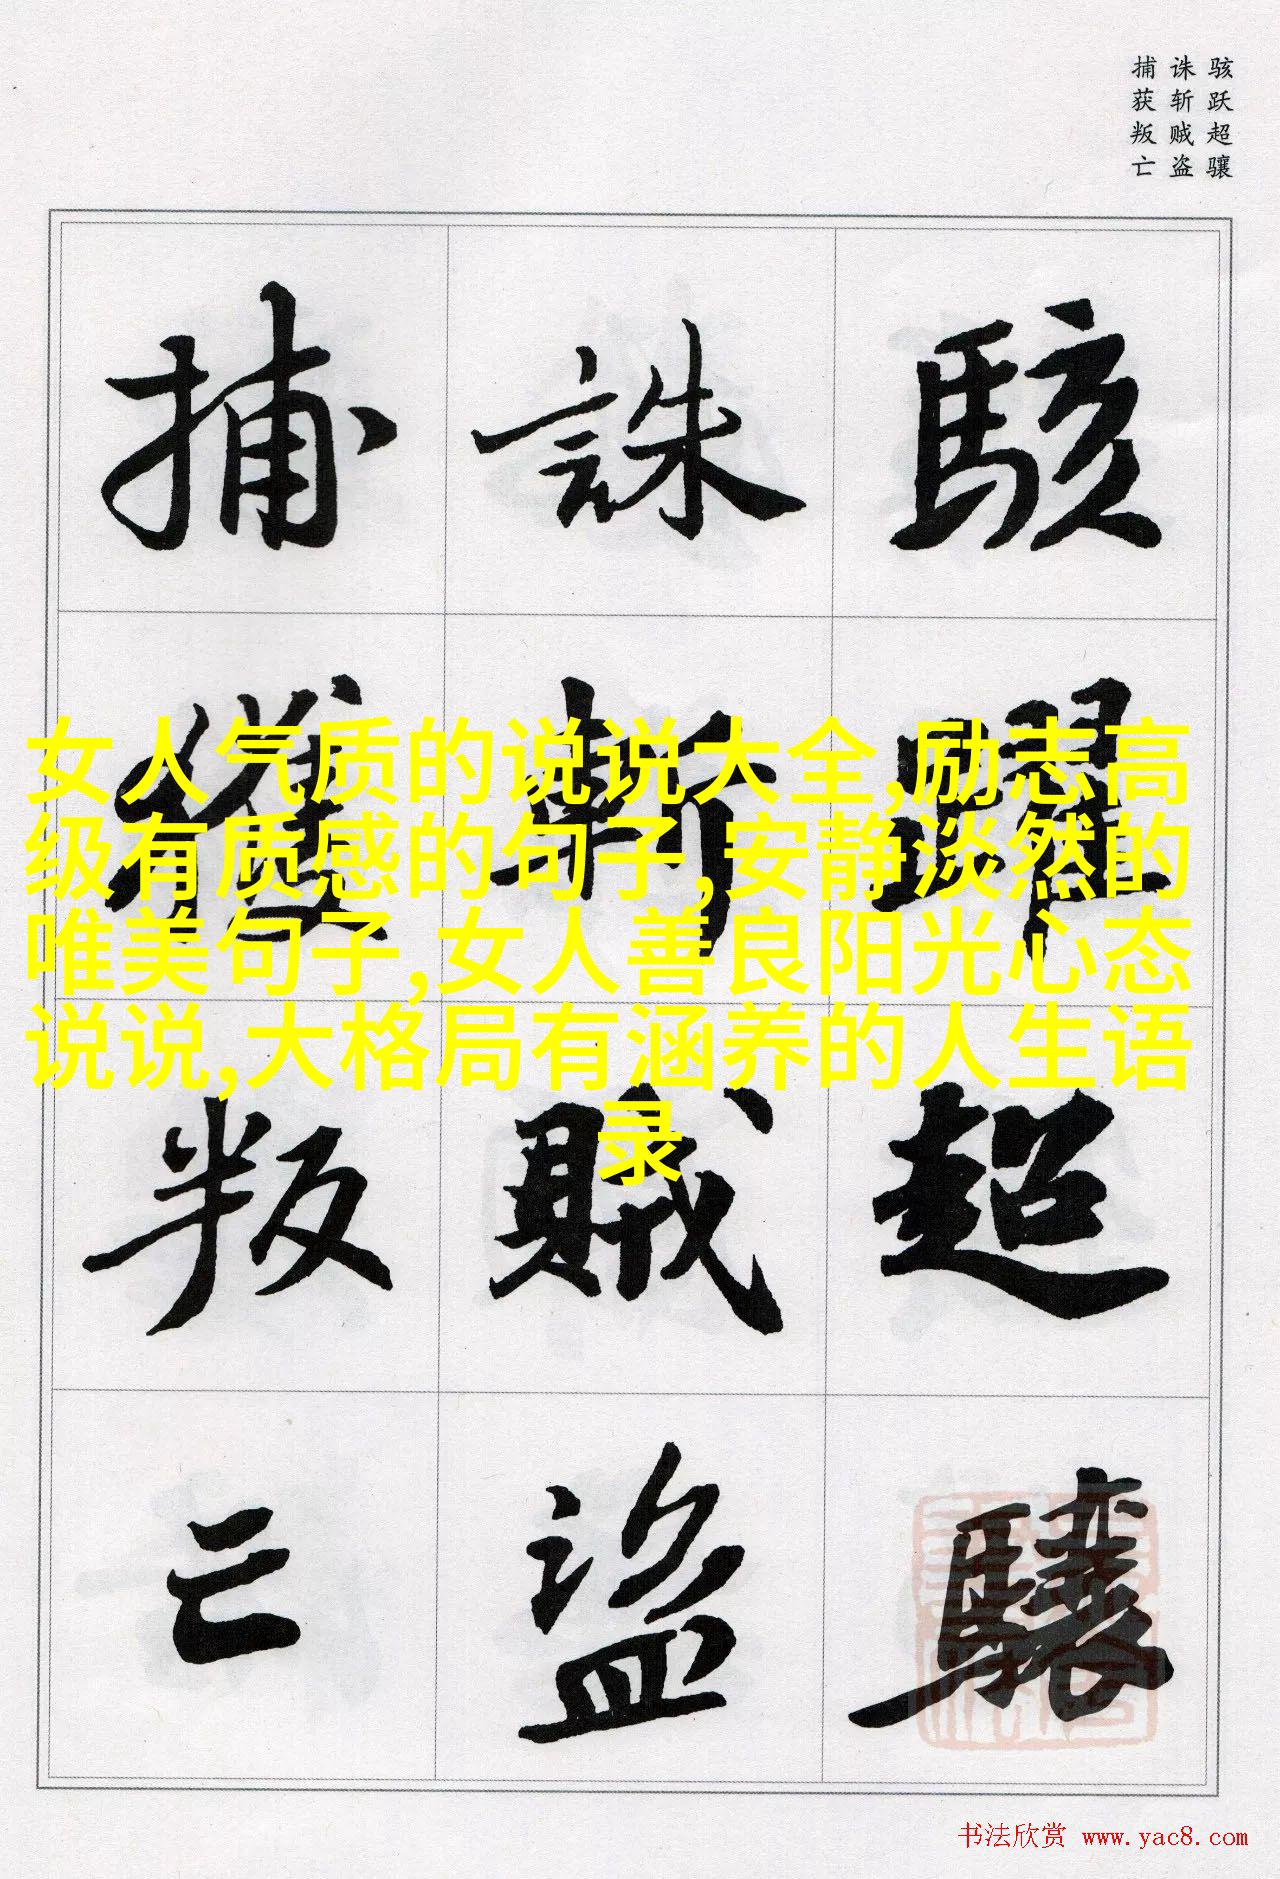 骇跃超骧
诛斩贼盗
捕获叛亡
駭躍超驤
誅斬賊盜
捕獲叛亡
女人气质的说说大全,励志高
级有质感的句子,安静淡然的
唯美句子,女人善良阳光心态
说说,大格局有涵养的人生语
录
书法欣赏 www.yac8.com